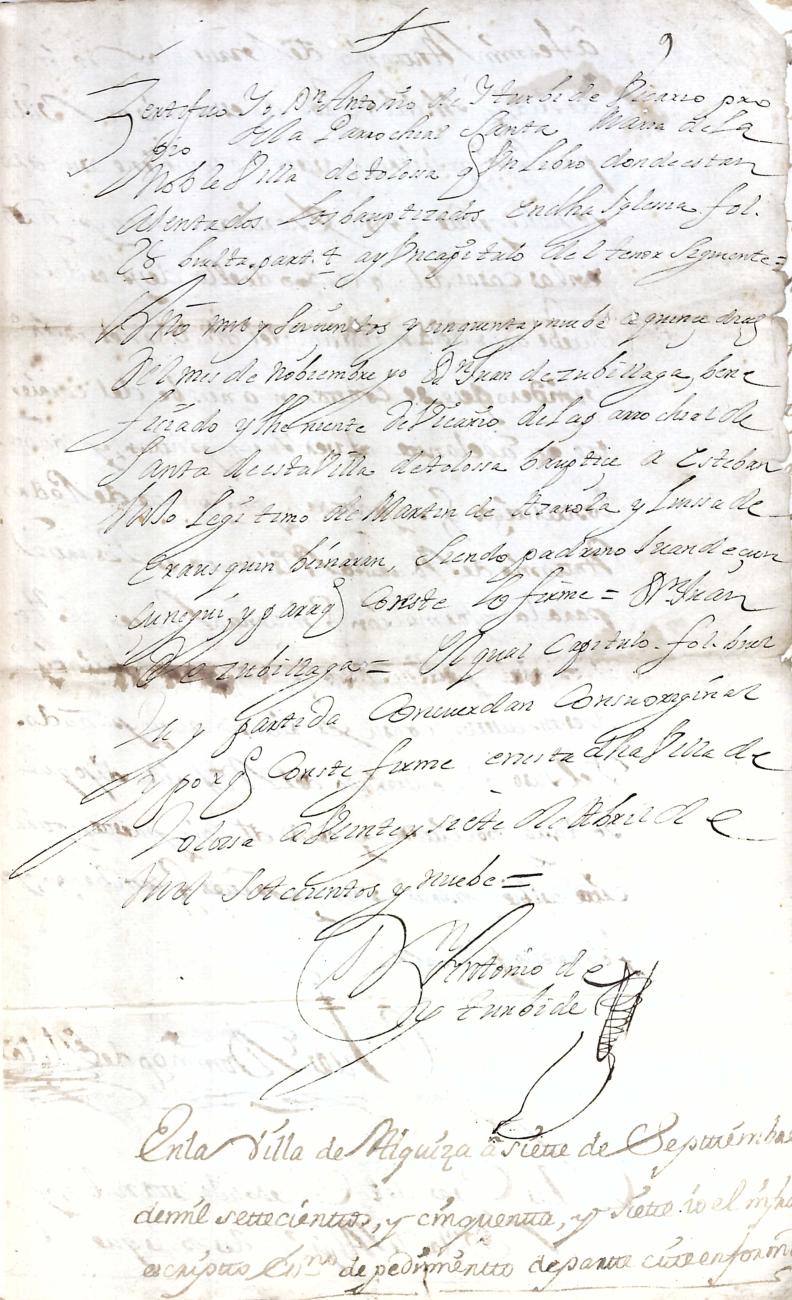 9
Zertifico Yo Dn Antonio de Yturbide Vicario pro
pio de la Parrochial Santa Maria de la
Noble Villa de tolossa q en Libro donde estan
asentados Los bauptizados en dha Yglesia fol.
78 buelta, part. 4 ay Vn capitulo del tenor Seguiente =
Año mil y seiscientos y cinquenta y nuebe a quince dias
del mes de nobiembre yo Dn Juan de zubillaga, bene
ficiado y theniente de Vicario de la parrochial de
Santa de esta Villa de tolossa bauptice a Esteban
hijo Legitimo de Martin de Azarola y Luisa de
Erausquin beinaran, siendo padrino Juan de
y para q Conste lo firme = Dn Juan
de zubillaga = El qual Capitulo. fol. buel
ta y partida Concuerdan Con su original
y por q Conste firme en esta dha Villa de
tolosa a Veinte y siete de Abril de
mil Setecientos y nuebe =
Dn Antonio de
yturbide
En la Villa de Alquiza a siette de Septtiembre
de mil settecienttos, y cinquentta, y siette yo el infra
escriptto Essno de pedimientto de partte citte en forma